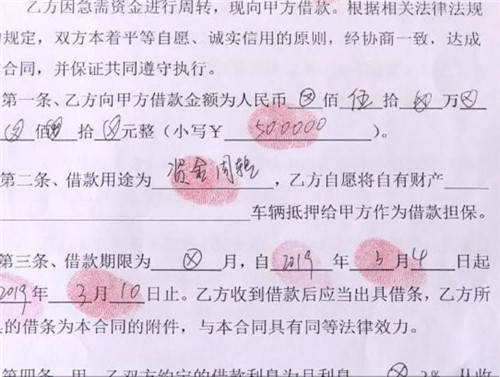 乙方因急需资金进行周转，现向甲方借款。根据相关法律法规
的规定，双方本着平等自愿、诚实信用的原则，经协商一致，达成
合同，并保证共同遵守执行。
第一条、乙方向甲方借款金额为人民币 ⊗ 佰 伍 拾 ⊗ 万 ⊗
佰 拾 ⊗ 元整（小写￥ 500000 ）。
第二条、借款用途为 资金周转 ，乙方自愿将自有财产
车辆抵押给甲方作为借款担保。
第三条、借款期限为 ⊗ 月，自 2019 年 3 月 4 日起
2019 年 3 月 10 日止。乙方收到借款后应当出具借条，乙方所
具的借条为本合同的附件，与本合同具有同等法律效力。
第四条、甲、乙双方约定的借款利息为月利息 ⊗ 2%，从收